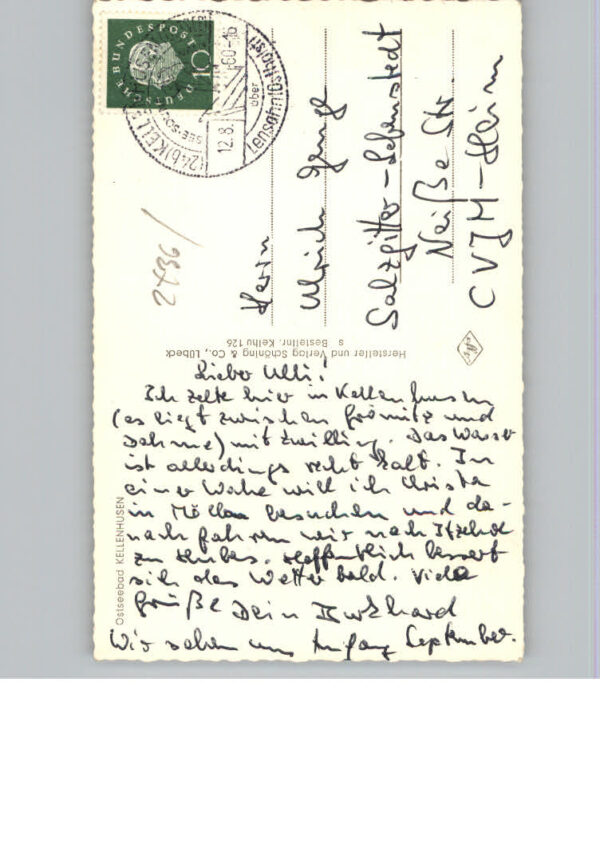 DEUTSCHE BUNDESPOST
10
(24b) KELL
SEE-
12.8. 60-16
über
Lensahn (Ostholst)
2436/
Herrn
Ulrich
Salzgitter-Lebenstedt
Neiße Str.
CVJM-Heim
Hersteller und Verlag Schöning & Co., Lübeck
s Bestellnr. Kelhu 126
Ostseebad KELLENHUSEN
Lieber Ulli!
Ich zelte hier in Kellenhusen
(es liegt zwischen Grömitz und
Dahme) mit Zwilling. Das Wasser
ist allerdings recht kalt. In
einer Woche will ich Christa
in Mölln besuchen und da-
nach fahren wir nach Itzehoe
zu Hubes. Hoffentlich bessert
sich das Wetter bald. Viele
Grüße Dein Burkhard
Wir sehen uns Anfang September.